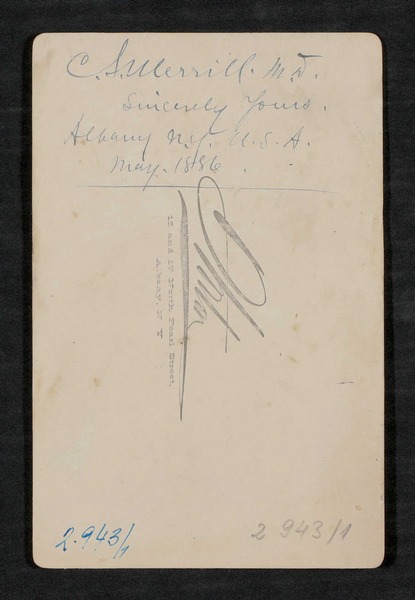 C. S. Merrill. M.D.
Sincerely Yours.
Albany N.Y. U.S.A.
May. 1886.
15 and 17 North Pearl Street,
Albany, N Y
2.943/1
2 943/1